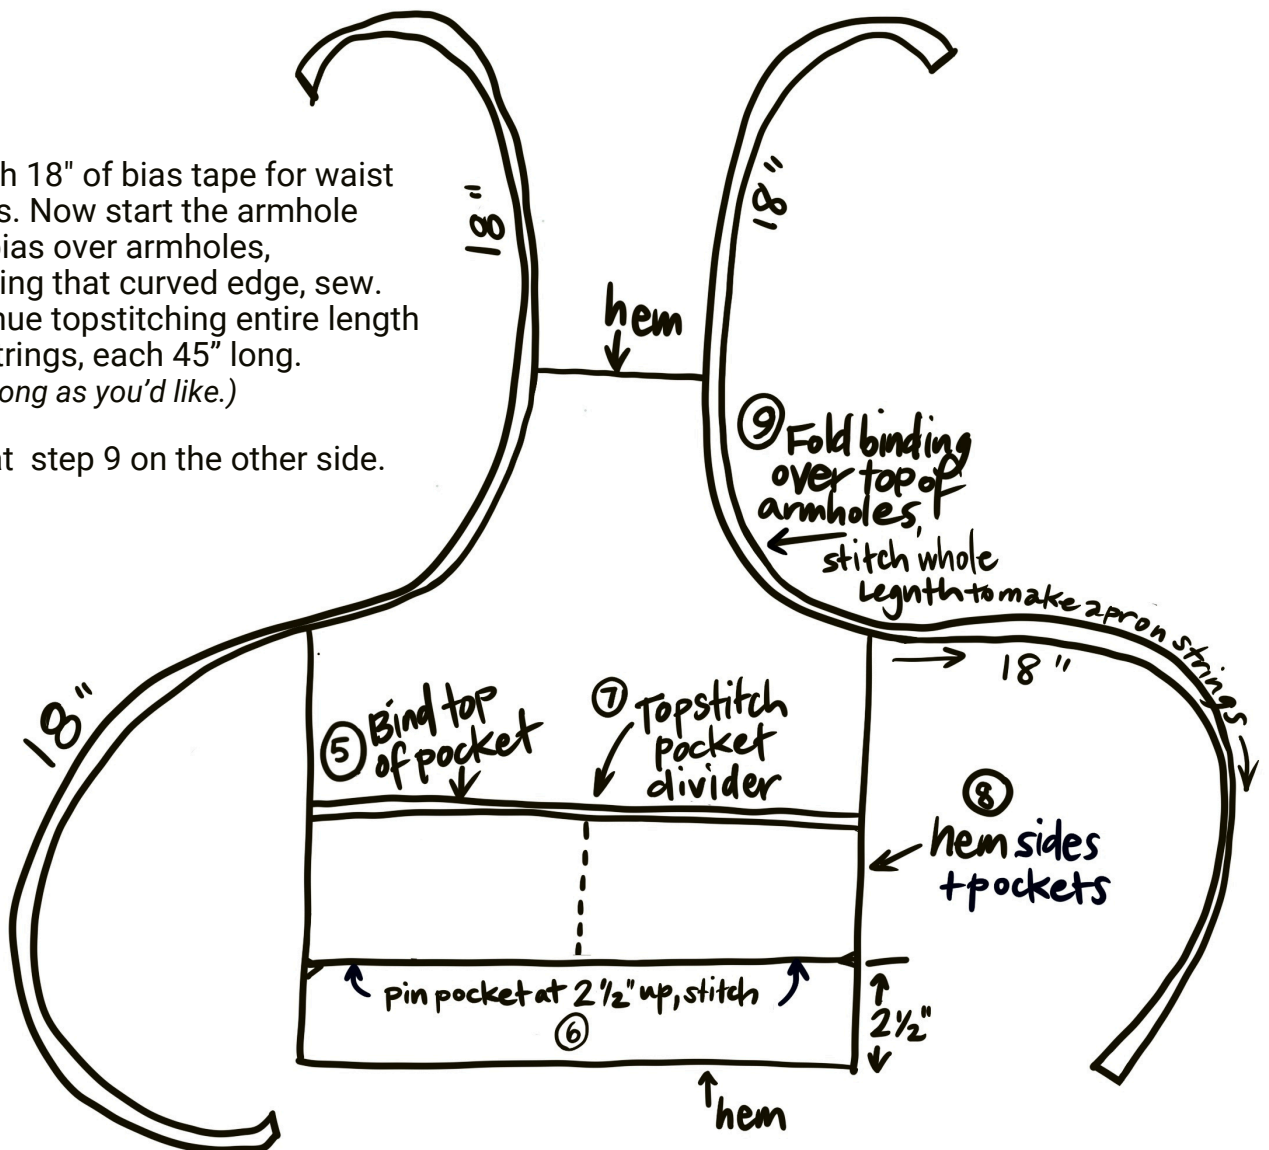 h 18" of bias tape for waist
s. Now start the armhole
bias over armholes,
ing that curved edge, sew.
nue topstitching entire length
trings, each 45” long.
ong as you’d like.)
at step 9 on the other side.
18"
18"
hem
9 Fold binding
over top of
armholes,
stitch whole
Legnth to make apron strings
18"
18"
5 Bind top
of pocket
7 Topstitch
pocket
divider
8
hem sides
+pockets
pin pocket at 2 1/2" up, stitch
6
2 1/2"
hem